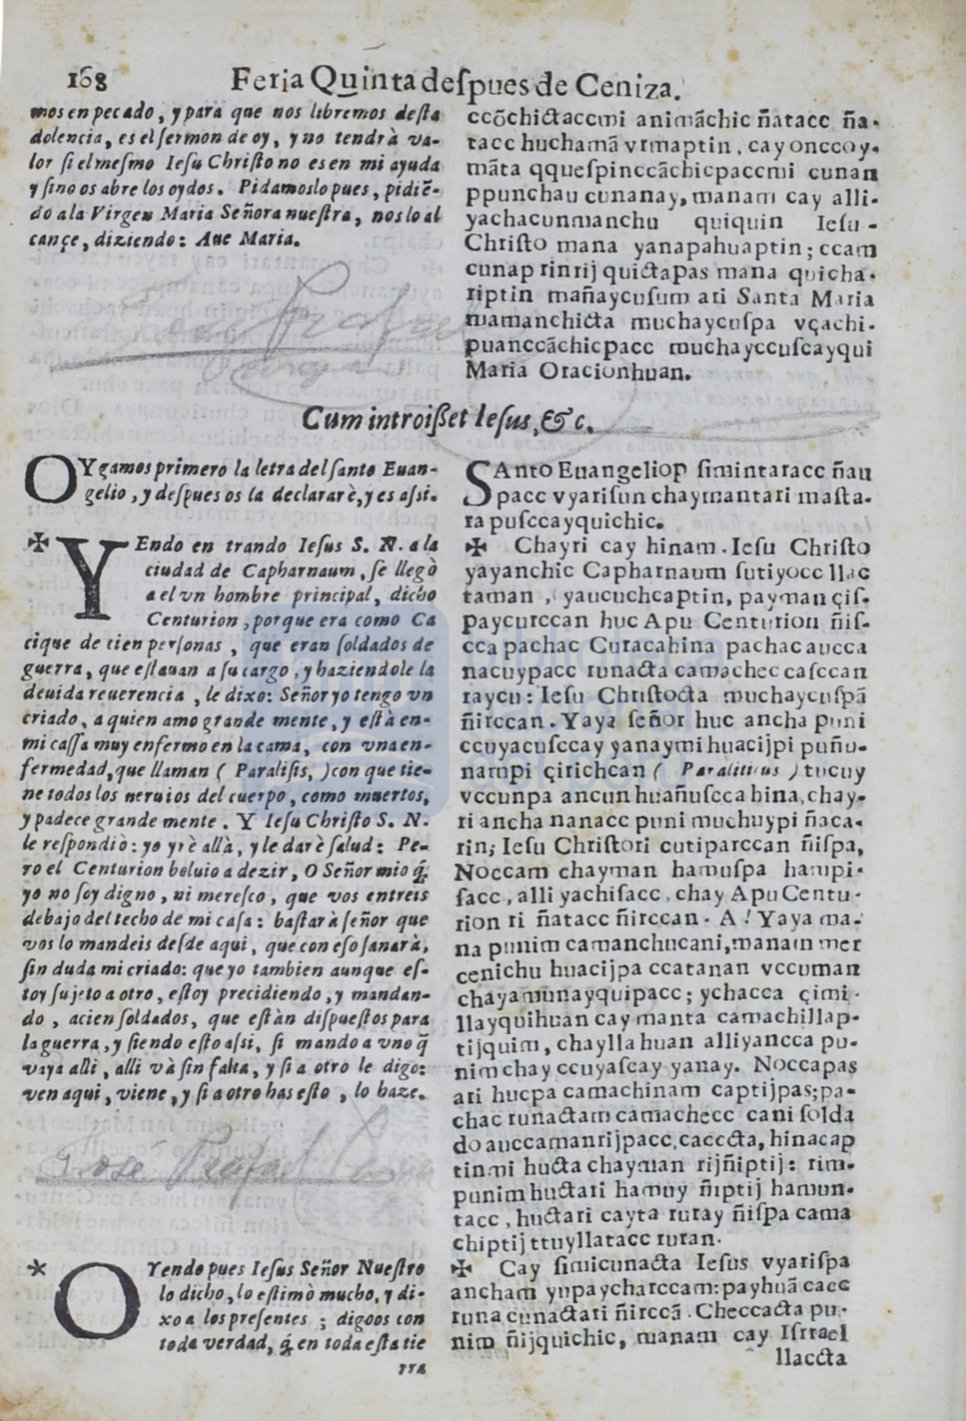 168 Feria Quinta despues de Ceniza.
mos en pecado, y para que nos libremos desta
dolencia, es el sermon de oy, y no tendrà va-
lor si el mesmo Iesu Christo no es en mi ayuda
y sino os abre los oydos. Pidamoslo pues, pidiẽ-
do a la Virgen Maria Señora nuestra, nos lo al
cançe, diziendo: Aue Maria.
ccõchictaccmi animãchic ñatacc ña-
tacc huchamã vrmaptin, cay onccoy-
mãta qquespinccãchicpaccmi cunan
ppunchau cunanay, manam cay alli-
yachacunmanchu quiquin Iesu-
Christo mana yanapahuaptin; ccam
cunap rinrij quictapas mana quicha-
riptin mañaycusum ari Santa Maria
mamanchicta muchaycuspa vçachi-
puanccãchicpacc muchayccuscayqui
Maria Oracionhuan.
Cum introisset Iesus, &c.
OYgamos primero la letra del santo Euan-
gelio, y despues os la declararè, y es assi.
✠ YEndo en trando Iesus S. N. a la
ciudad de Capharnaum, se llegò
a el vn hombre principal, dicho
Centurion, porque era como Ca
cique de cien personas, que eran soldados de
guerra, que estauan a su cargo, y haziendole la
deuida reuerencia, le dixo: Señor yo tengo vn
criado, a quien amo grande mente, y està en-
mi cassa muy enfermo en la cama, con vna en-
fermedad, que llaman ( Paralisis, ) con que tie-
ne todos los neruios del cuerpo, como muertos,
y padece grande mente. Y Iesu Christo S. N.
le respondiò: yo yrè allà, y le darè salud: Pe-
ro el Centurion boluio a dezir, O Señor mio q̃
yo no soy digno, ni meresco, que vos entreis
debajo del techo de mi casa: bastarà señor que
vos lo mandeis desde aqui, que con eso sanarà,
sin duda mi criado: que yo tambien aunque es-
toy sujeto a otro, estoy precidiendo, y mandan-
do, a cien soldados, que estàn dispuestos para
la guerra, y siendo esto assi, si mando a vno q̃
vaya alli, alli và sin falta, y si a otro le digo:
ven aqui, viene, y si a otro has esto, lo haze.
Jose Rafael
* OYendo pues Iesus Señor Nuestro
lo dicho, lo estimò mucho, y di-
xo a los presentes; digoos con
toda verdad, q̃ en toda esta tie
rra
SAnto Euangeliop simintaracc ñau
pacc vyarisun chaymantari masta-
ra pusccayquichic.
✠ Chayri cay hinam. Iesu Christo
yayanchic Capharnaum sutiyocc llac
taman, yaucuchcaptin, payman çis-
paycurccan huc Apu Centurion ñis-
cca pachac Curacahina pachac aucca
nacuypacc runacta camachec casccan
raycu: Iesu Christocta muchaycuspã
ñirccan. Yaya señor huc ancha puni
ccuyacusccay yanaymi huacijpi puñu-
nampi çirichcan ( Paraliticus ) tucuy
vccunpa ancun huañuscca hina, chay-
ri ancha nanacc puni muchuypi ñaca-
rin; Iesu Christori cutiparccan ñispa,
Noccam chayman hamuspa hampi-
sacc, alli yachisacc, chay Apu Centu-
rion ri ñatacc ñirccan. A! Yaya ma-
na punim camanchucani, manam mer
cenichu huacijpa ccatanan vccuman
chayamunayquipacc; ychacca çimi-
llayquihuan cay manta camachillap-
tijquim, chaylla huan alliyancca pu-
nim chay ccuyascay yanay. Noccapas
ari hucpa camachinam captijpas; pa-
chac runactam camachecc cani solda
do auccamanrijpacc, caccta, hinacap
tinmi hucta chayman rijñiptij: rim-
punim huctari hamuy ñiptij hamun-
tacc, huctari cayta ruray ñispa cama
chiptij ttuyllatacc ruran.
✠ Cay simicunacta Iesus vyarispa
ancham yupaycharccam: payhuã cacc
runa cunactari ñirccã. Checcacta pu-
nim ñijquichic, manam cay Isrrael
llaccta